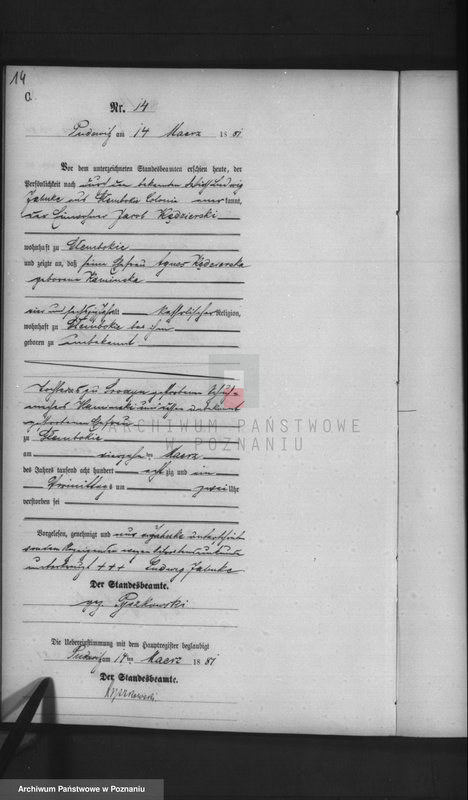 14
C.
Nr. 14
Pudewitz am 14 Maerz 1881
Vor dem unterzeichneten Standesbeamten erschien heute, der
Persönlichkeit nach durch den bekannten Ludwig
Jahnke aus Stembokie Colonie anerkannt,
der Einwohner Jacob Kędzierski
wohnhaft zu Stembokie
und zeigte an, daß seine Ehefrau Agnes Kędzierska
geborene Kaminska
vier und sechszig Jahr katholischer Religion,
wohnhaft zu Stembokie bei ihm
geboren zu unbekannt
Tochter des zu verstorbenen
Kaminski und dessen unbekannt
verstorbenen Ehefrau
zu Stembokie
am vierzehnten Maerz
des Jahres tausend acht hundert achtzig und ein
Vormittags um zwei Uhr
verstorben sei
Vorgelesen, genehmigt und
unterkreuzt +++ Ludwig Jahnke
Der Standesbeamte.
gez Pyszkowski
Die Uebereinstimmung mit dem Hauptregister beglaubigt
Pudewitz am 14ten Maerz 1881
Der Standesbeamte.
Pyszkowski
ARCHIWUM PAŃSTWOWE
W POZNANIU
Archiwum Państwowe w Poznaniu